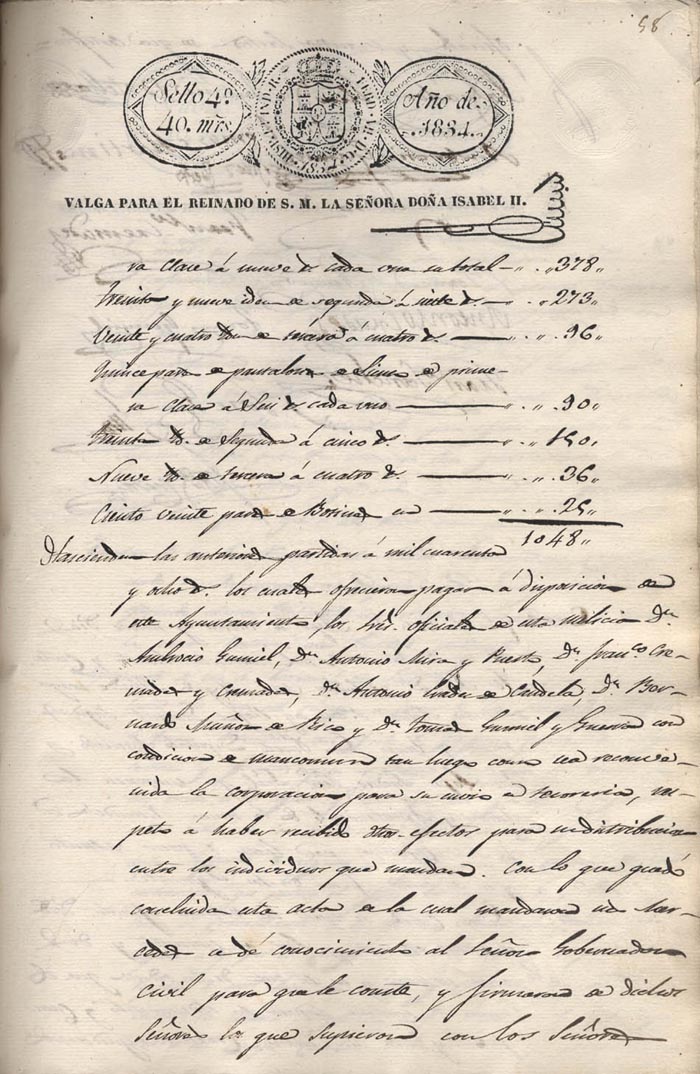 58
Sello 4º
40. mrs.
Año de
1834.
VALGA PARA EL REINADO DE S. M. LA SEÑORA DOÑA ISABEL II.
ra clase á nueve rs cada una su total — „ . „ 378 „
Treinta y nueve idem de segunda á siete rs — „ . „ 273 „
Veinte y cuatro id. de tercera á cuatro rs. — „ . „ 96 „
Quince pares de pantalones de de prime-
ra clase á Seis rs cada uno — „ . „ 90 „
Treinta id. de Segunda á cinco rs. — „ . „ 150 „
Nueve id. de tercera á cuatro rs. — „ . „ 36 „
Ciento veinte pares de en — „ . „ 25 „
1048 „
Hascienden las anteriores partidas á mil cuarenta
y ocho rs. los cuales ofrecieron pagar á disposicion de
este Ayuntamiento, los Sres. oficiales de esta milicia Dn.
Ambrocio Gumiel, Dn Antonio Mira y Dn Franco. Cre-
mades y Cremades, Dn. Antonio de Candela, Dn. Ber-
nardo Muñoz de Rico y Dn Tomas Gumiel y Guerra con
condicion de mancomun tan luego como sea reconve-
nida la corporacion para su envio a tesoreria, res-
peto á haber recibido otros efectos para su distribucion
entre los individuos que mandan. Con lo que quedó
concluida esta acta de la cual mandaron sus Mer-
cedes se dé conocimiento al Señor Gobernador
Civil para que le conste, y firmaron de dichos
Señores los que supieron con los Señores